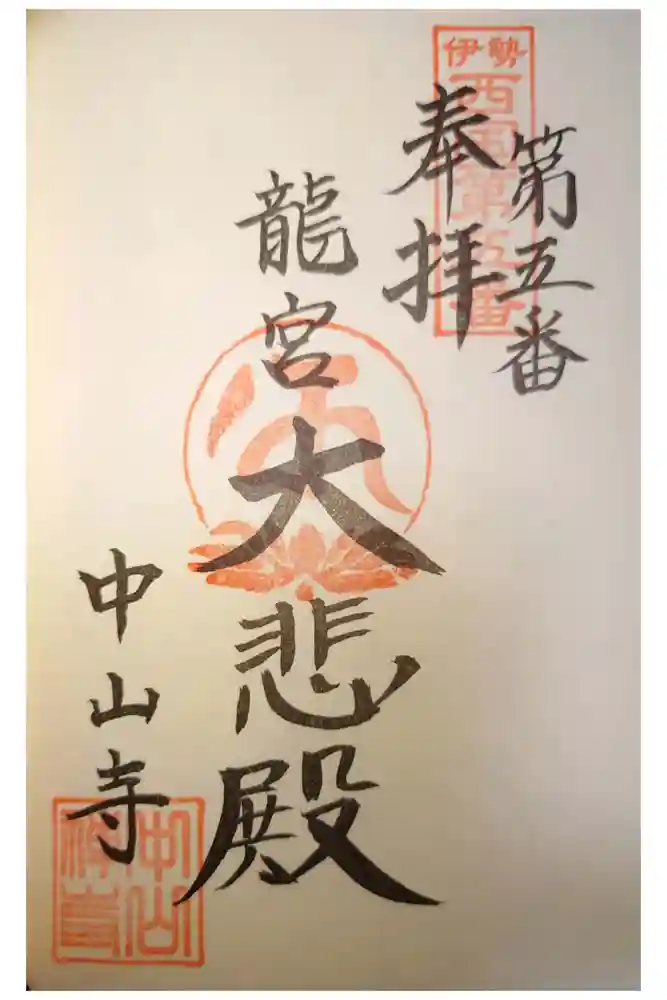 伊勢
西国第五番
第五番
奉拝
龍宮
大悲殿
中山寺